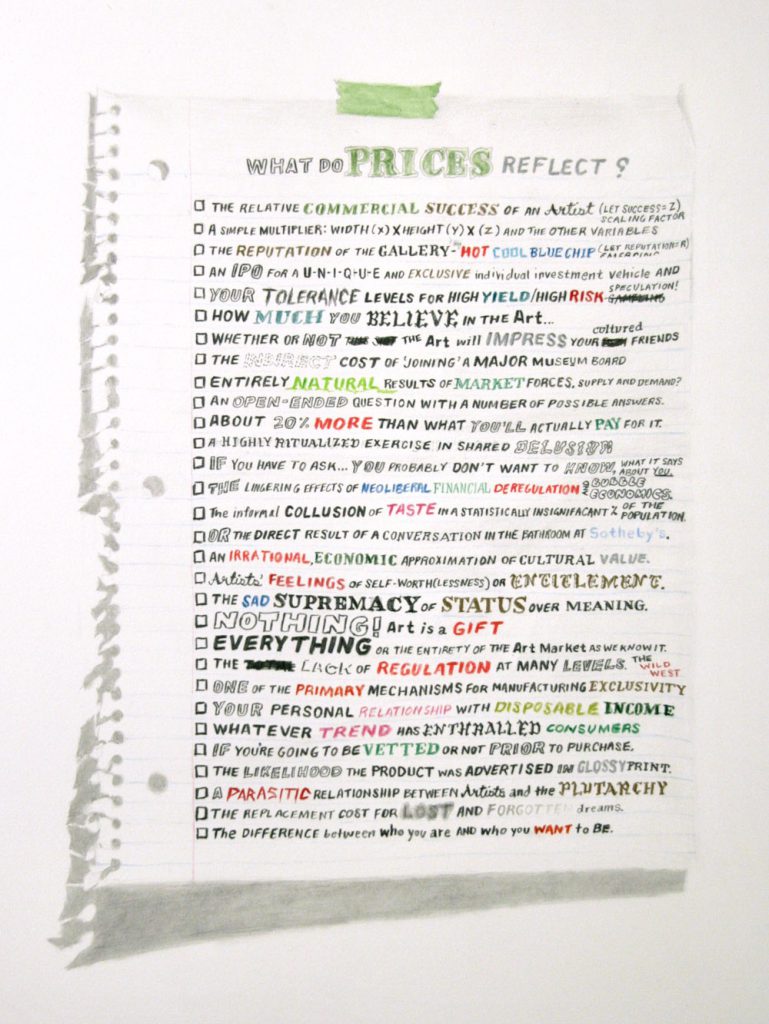 WHAT DO PRICES REFLECT?
THE RELATIVE COMMERCIAL SUCCESS OF AN Artist (LET SUCCESS=Z) SCALING FACTOR
A SIMPLE MULTIPLIER: WIDTH (X) X HEIGHT (Y) X (Z) AND THE OTHER VARIABLES
THE REPUTATION OF THE GALLERY- HOT COOL BLUE CHIP (LET REPUTATION=R) EMERGING
AN IPO FOR A U-N-I-Q-U-E AND EXCLUSIVE individual investment vehicle AND SPECULATION!
YOUR TOLERANCE LEVELS FOR HIGH YIELD/HIGH RISK GAMBLING
HOW MUCH YOU BELIEVE IN THE Art...
WHETHER OR NOT THE Art will IMPRESS YOUR cultured FRIENDS
THE INDIRECT COST OF 'JOINING' A MAJOR MUSEUM BOARD
ENTIRELY NATURAL RESULTS OF MARKET FORCES, SUPPLY AND DEMAND?
AN OPEN-ENDED QUESTION WITH A NUMBER OF POSSIBLE ANSWERS.
ABOUT 20% MORE THAN WHAT YOU'LL ACTUALLY PAY FOR IT.
A HIGHLY RITUALIZED EXERCISE IN SHARED DELUSION
IF YOU HAVE TO ASK... YOU PROBABLY DON'T WANT TO KNOW, WHAT IT SAYS ABOUT YOU.
THE LINGERING EFFECTS OF NEOLIBERAL FINANCIAL DEREGULATION & BUBBLE ECONOMICS.
The informal COLLUSION OF TASTE IN A STATISTICALLY INSIGNIFACANT % OF THE POPULATION.
OR THE DIRECT RESULT OF A CONVERSATION IN THE BATHROOM AT Sotheby's.
AN IRRATIONAL, ECONOMIC APPROXIMATION OF CULTURAL VALUE.
Artists' FEELINGS OF SELF-WORTH(LESSNESS) OR ENTITLEMENT.
THE SAD SUPREMACY OF STATUS OVER MEANING.
NOTHING! Art is a GIFT
EVERYTHING OR THE ENTIRETY OF THE Art Market AS WE KNOW IT.
THE LACK OF REGULATION AT MANY LEVELS. THE WILD WEST
ONE OF THE PRIMARY MECHANISMS FOR MANUFACTURING EXCLUSIVITY
YOUR PERSONAL RELATIONSHIP WITH DISPOSABLE INCOME
WHATEVER TREND HAS ENTHRALLED CONSUMERS
IF YOU'RE GOING TO BE VETTED OR NOT PRIOR TO PURCHASE.
THE LIKELIHOOD THE PRODUCT WAS ADVERTISED IN GLOSSY PRINT.
A PARASITIC RELATIONSHIP BETWEEN Artists and the PLUTARCHY
THE REPLACEMENT COST FOR LOST AND FORGOTTEN dreams.
The DIFFERENCE between who you are AND who you WANT to BE.